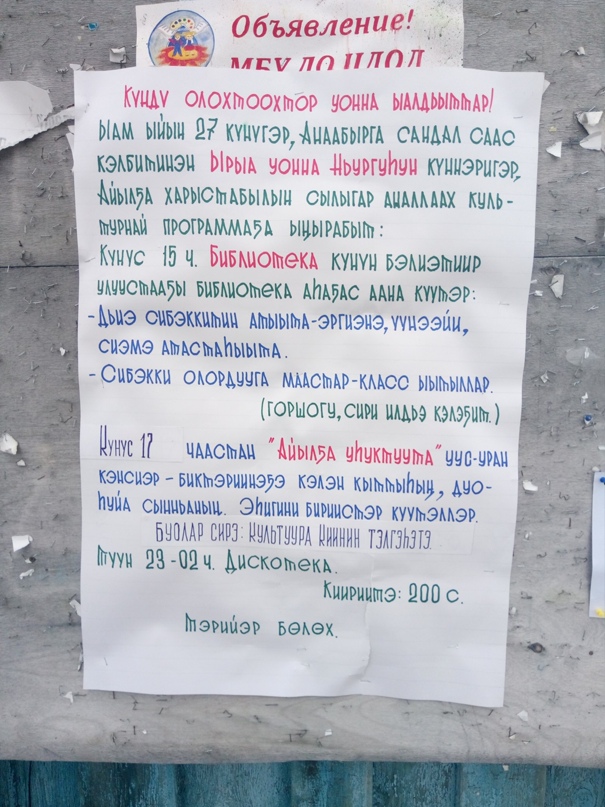 Объявление!
МБУ ДО ЦДОД
Күндү олохтоохтор уонна ыалдьыттар!
Ыам ыйын 27 күнүгэр, Анаабырга сандал саас
кэлбитинэн Ырыа уонна Ньургуһун күннэригэр,
Айылҕа харыстабылын сылыгар аналлаах куль-
турнай программаҕа ыҥырабыт:
Күнүс 15 ч. Библиотека күнүн бэлиэтиир
улуустааҕы библиотека аһаҕас аана күүтэр:
-Дьиэ сибэккитин атыыта-эргиэнэ, үүнээйи,
сиэмэ атастаһыыта.
-Сибэкки олордууга маастар-класс ыытыллар.
(горшогу, сири илдьэ кэлэҕит.)
Күнүс 17 чаастан "Айылҕа уһуктуута" уус-уран
кэнсиэр - биктэриинэҕэ кэлэн кыттыһыҥ, дуо-
һуйа сынньаныҥ. Эһигини бириистэр күүтэллэр.
Буолар сирэ: Культуура Киинин тэлгэһэтэ
Түүн 23-02 ч. Дискотека.
Киириитэ: 200 с.
Тэрийэр бөлөх.